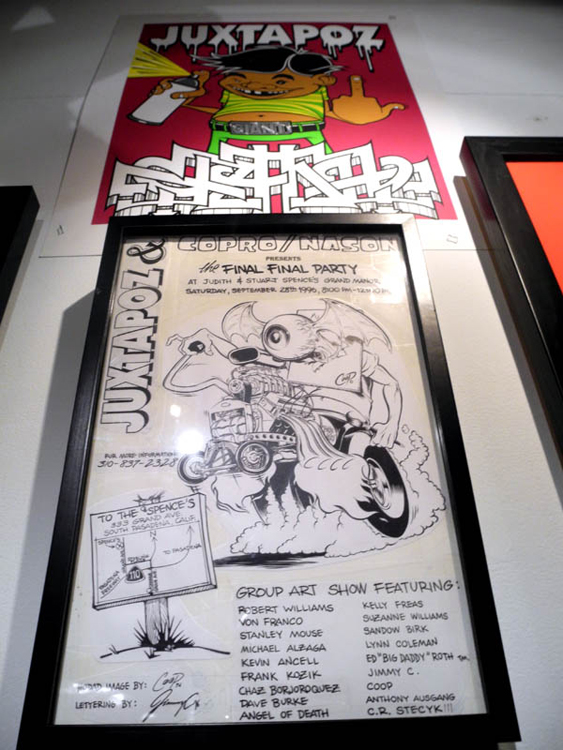 JUXTAPOZ
GIANT
JUXTAPOZ &
COPRO/NASON
PRESENTS
the FINAL FINAL PARTY
AT JUDITH & STUART SPENCE'S GRAND MANOR
SATURDAY, SEPTEMBER 28TH 1996, 8:00 PM-
COOP
FOR MORE INFORMATION:
310-837-2328
TO THE SPENCE'S
333 GRAND AVE.
SOUTH PASADENA, CALIF.
N
TO PASADENA
110
GROUP ART SHOW FEATURING:
ROBERT WILLIAMS
VON FRANCO
STANLEY MOUSE
MICHAEL ALZAGA
KEVIN ANCELL
FRANK KOZIK
CHAZ BORJORQUEZ
DAVE BURKE
ANGEL OF DEATH
KELLY FREAS
SUZANNE WILLIAMS
SANDOW BIRK
LYNN COLEMAN
ED "BIG DADDY" ROTH TM.
JIMMY C.
COOP
ANTHONY AUSGANG
C.R. STECYK III
IMAGE BY: COOP
LETTERING BY: Jimmy C